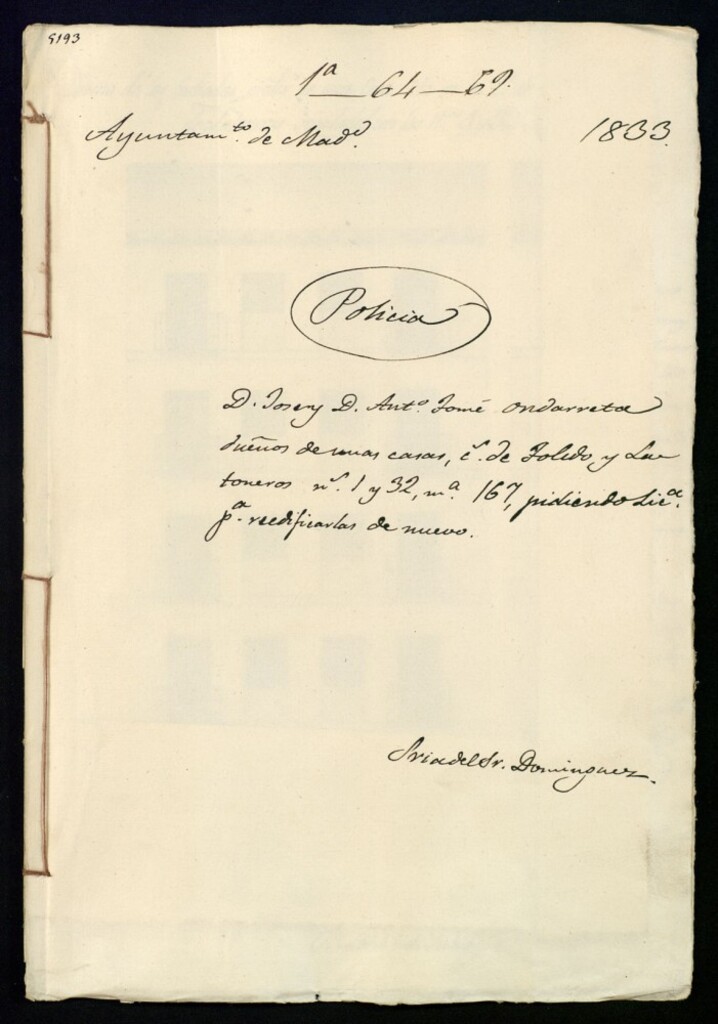 5193
1ª — 64 — 69.
Ayuntam.to de Mad.d 1833.
Policia
D. Jose y D. Ant.o Tomé Ondarreta
dueños de unas casas, c.e de Toledo y La-
toneros n.s 1 y 32, m.a 167, pidiendo Lic.a
p.a reedificarlas de nuevo.
Sria del Sr. Dominguez.